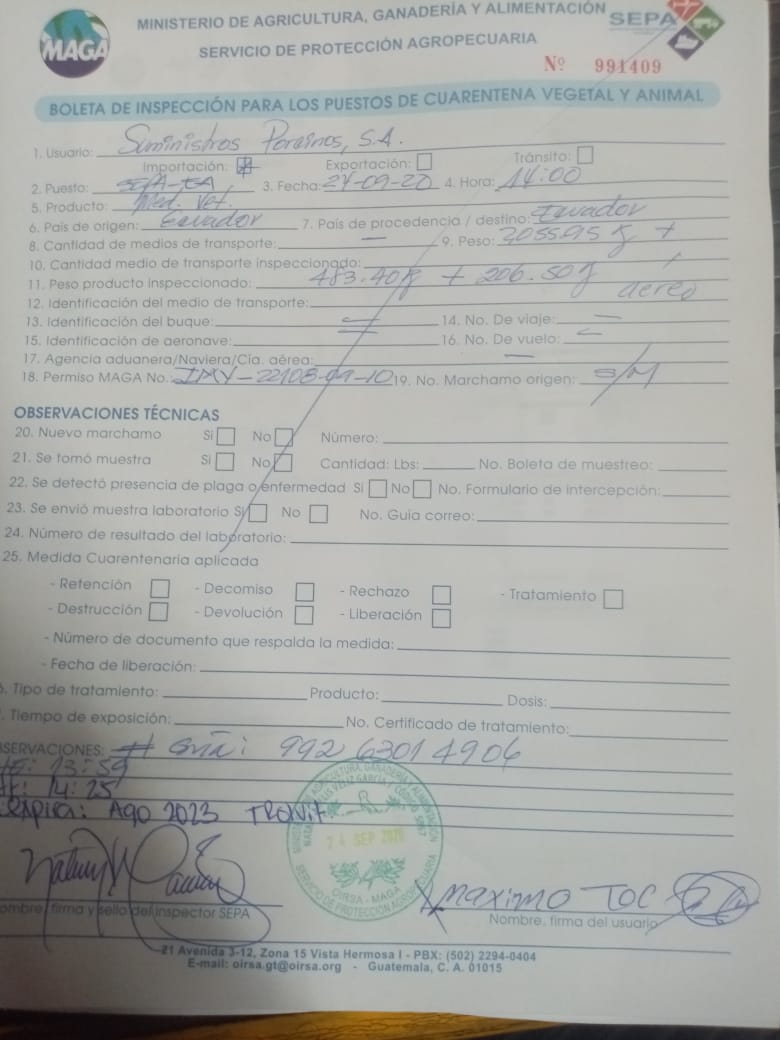 MAGA
MINISTERIO DE AGRICULTURA, GANADERÍA Y ALIMENTACIÓN
SERVICIO DE PROTECCIÓN AGROPECUARIA
SEPA
Nº 991409
BOLETA DE INSPECCIÓN PARA LOS PUESTOS DE CUARENTENA VEGETAL Y ANIMAL
1. Usuario: Suministros Porcinos, S.A.
Importación: Exportación: Tránsito:
2. Puesto: 3. Fecha: 24-09-20 4. Hora: 14:00
5. Producto: Med. Vet.
6. País de origen: Ecuador 7. País de procedencia / destino: Ecuador
8. Cantidad de medios de transporte: — 9. Peso:
10. Cantidad medio de transporte inspeccionado:
11. Peso producto inspeccionado: + 206.50g
aereo
12. Identificación del medio de transporte:
13. Identificación del buque: 14. No. De viaje: —
15. Identificación de aeronave: 16. No. De vuelo:
17. Agencia aduanera/Naviera/Cía. aérea: —
18. Permiso MAGA No.: 19. No. Marchamo origen: S/M
OBSERVACIONES TÉCNICAS
20. Nuevo marchamo Si No Número:
21. Se tomó muestra Si No Cantidad: Lbs: No. Boleta de muestreo:
22. Se detectó presencia de plaga o enfermedad Si No No. Formulario de intercepción:
23. Se envió muestra laboratorio Si No No. Guía correo:
24. Número de resultado del laboratorio:
25. Medida Cuarentenaria aplicada
- Retención - Decomiso - Rechazo - Tratamiento
- Destrucción - Devolución - Liberación
- Número de documento que respalda la medida:
- Fecha de liberación:
. Tipo de tratamiento: Producto: Dosis:
. Tiempo de exposición: No. Certificado de tratamiento:
SERVACIONES: # Guía: 992 6301 4906
: 13:59
: 14:25
expira: Ago 2023
24 SEP 2020
OIRSA - MAGA
SERVICIO DE PROTECCIÓN AGROPECUARIA
Maximo Toc
ombre, firma y sello del inspector SEPA
Nombre, firma del usuario
21 Avenida 3-12, Zona 15 Vista Hermosa I - PBX: (502) 2294-0404
E-mail: oirsa.gt@oirsa.org - Guatemala, C. A. 01015